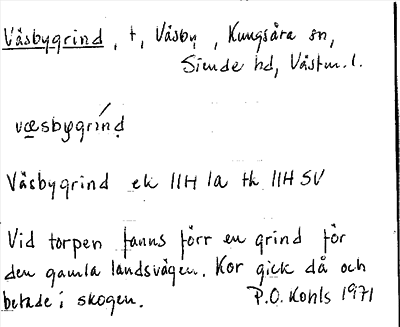 Väsbygrind, t, Väsby, Kungsåra sn,
Siende hd, Västm. l.
væsbygrínd
Väsbygrind ek 11H 1a tk 11H SV
Vid torpen fanns förr en grind för
den gamla landsvägen. Kor gick då och
betade i skogen. P.O. Kohls 1971